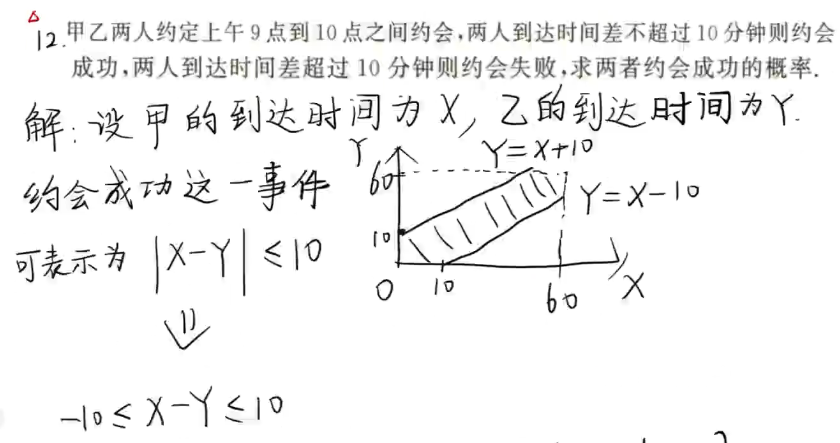 △
12.甲乙两人约定上午9点到10点之间约会,两人到达时间差不超过10分钟则约会
成功,两人到达时间差超过10分钟则约会失败,求两者约会成功的概率.
解:设甲的到达时间为X,乙的到达时间为Y.
约会成功这一事件
可表示为 |X-Y|≤10
⇓
-10≤X-Y≤10
Y
Y=X+10
60
Y=X-10
10
0 10 60 X